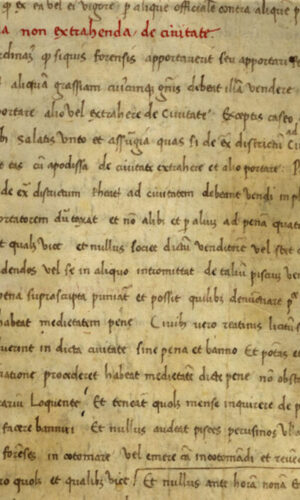 q ex ea vel ei vigore p aliquē officialē contra aliquē p
a non extrahenda de civitate
ordinam q siquis forensis apportaverit seu apportari
aliquā grassiam cuiuscunq gnis debeat illā vendere
portare alio vel extrahere de Civitate Exceptis caseo
salatis unto et assungia quas si de ex districtu
eas cū apodissa de civitate extrahere et alio portare
de ex districtum ad civitatem debeant vendi in pl
portatorem dūtaxat et nō alibi et p alium ad pena quat
qualz vice et nullus societ dictū venditorē vel stet
dendos vel se in aliquo intromittat de taliū piscium ven
pena suprascripta puniat et possit quilibz denunciare
habeat medietatem pene Civibz vero reatinis licitū
fuerint in dicta civitate sine pena et banno Et potās
ratione procederet habeat medietatē dicte pene nō obst
tariū Loquente Et teneat quolz mense inquirere de p
facere banniri Et nullus audeat pisces perusinos
forēses in cotomare vel emere cā incotomādi et reve
ro quolz et qualibz vice Et nullus ante horā nonā